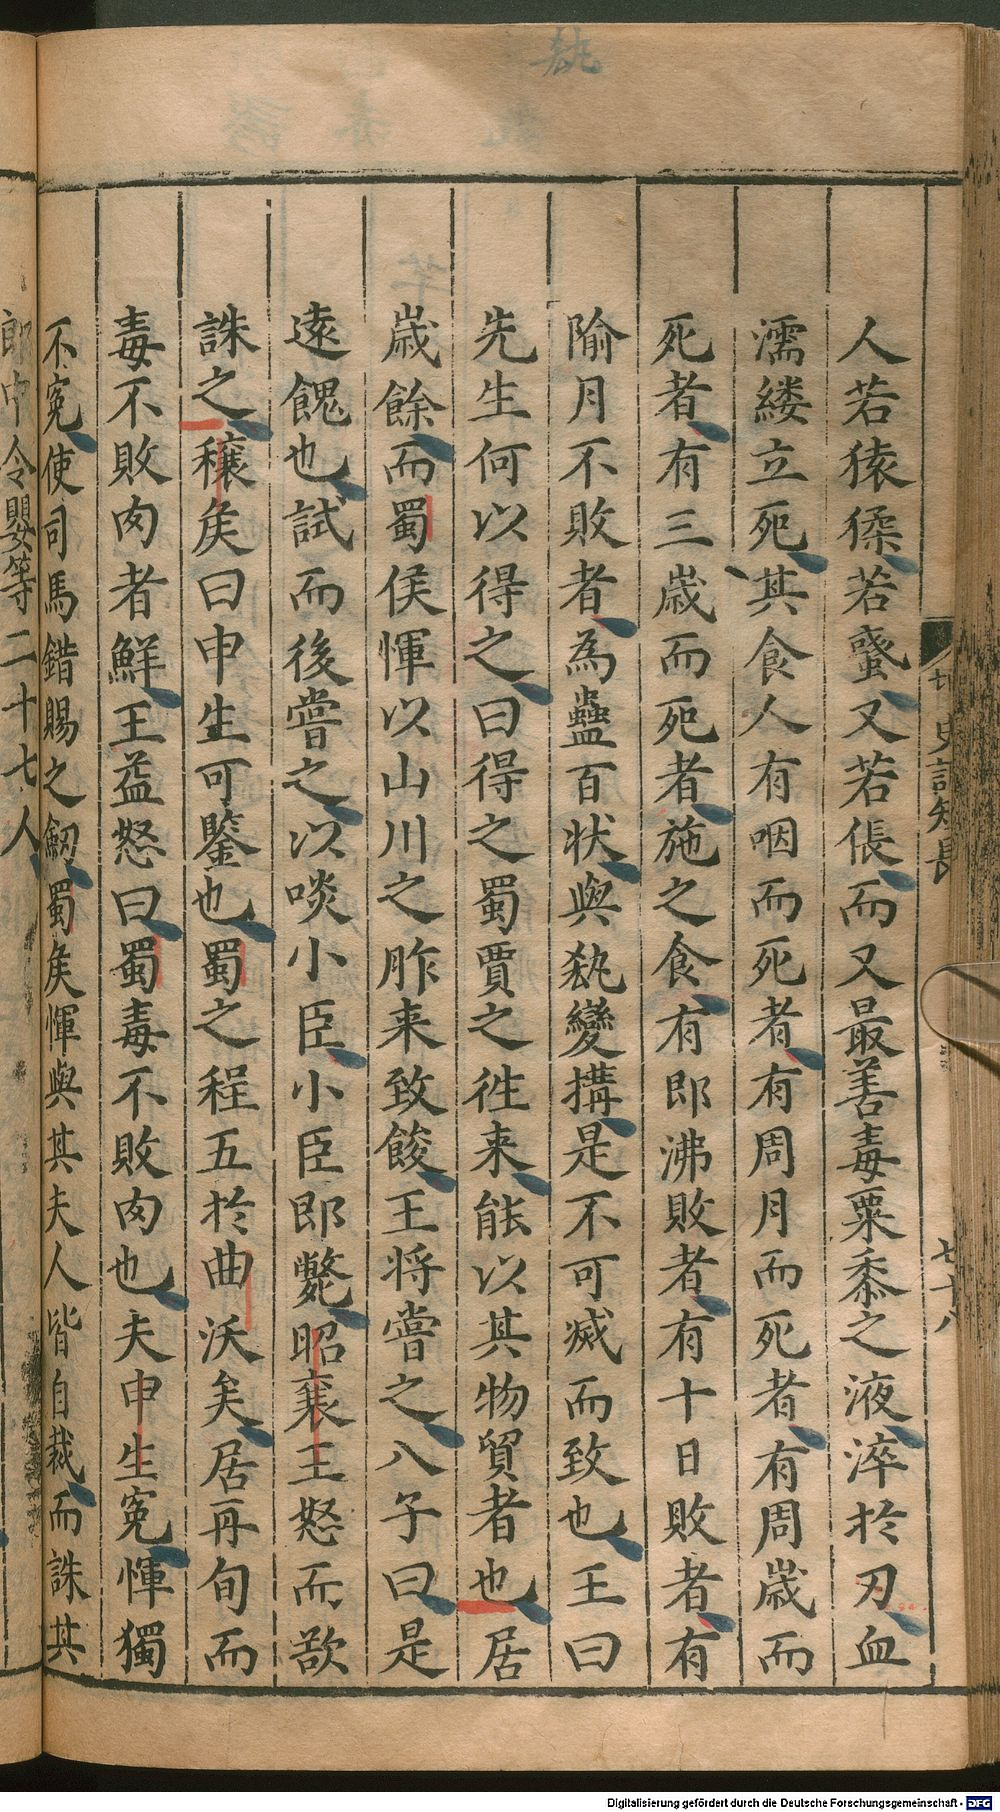 人若猿猱若蜑又若倀而又最善毒粟黍之液淬於刃血
濡縷立死其食人有咽而死者有周月而死者有周歲而
死者有三歲而死者施之食有即沸敗者有十日敗者有
隃月不敗者為蠱百狀與埶變搆是不可烕而致也王曰
先生何以得之曰得之蜀賈之徃来能以其物貿者也居
歲餘而蜀侯惲以山川之胙来致餕王将嘗之八子曰是
遠餽也試而後嘗之以啖小臣小臣即斃昭襄王怒而欲
誅之穰矦曰申生可鑒也蜀之程五於曲沃矣居再旬而
毒不敗肉者鮮王益怒曰蜀毒不敗肉也夫申生冤惲獨
不冤使司馬錯賜之劒蜀矦惲與其夫人皆自裁而誅其
郎中令嬰等二十七人
史記短長
七十八
Digitalisierung gefördert durch die Deutsche Forschungsgemeinschaft - DFG